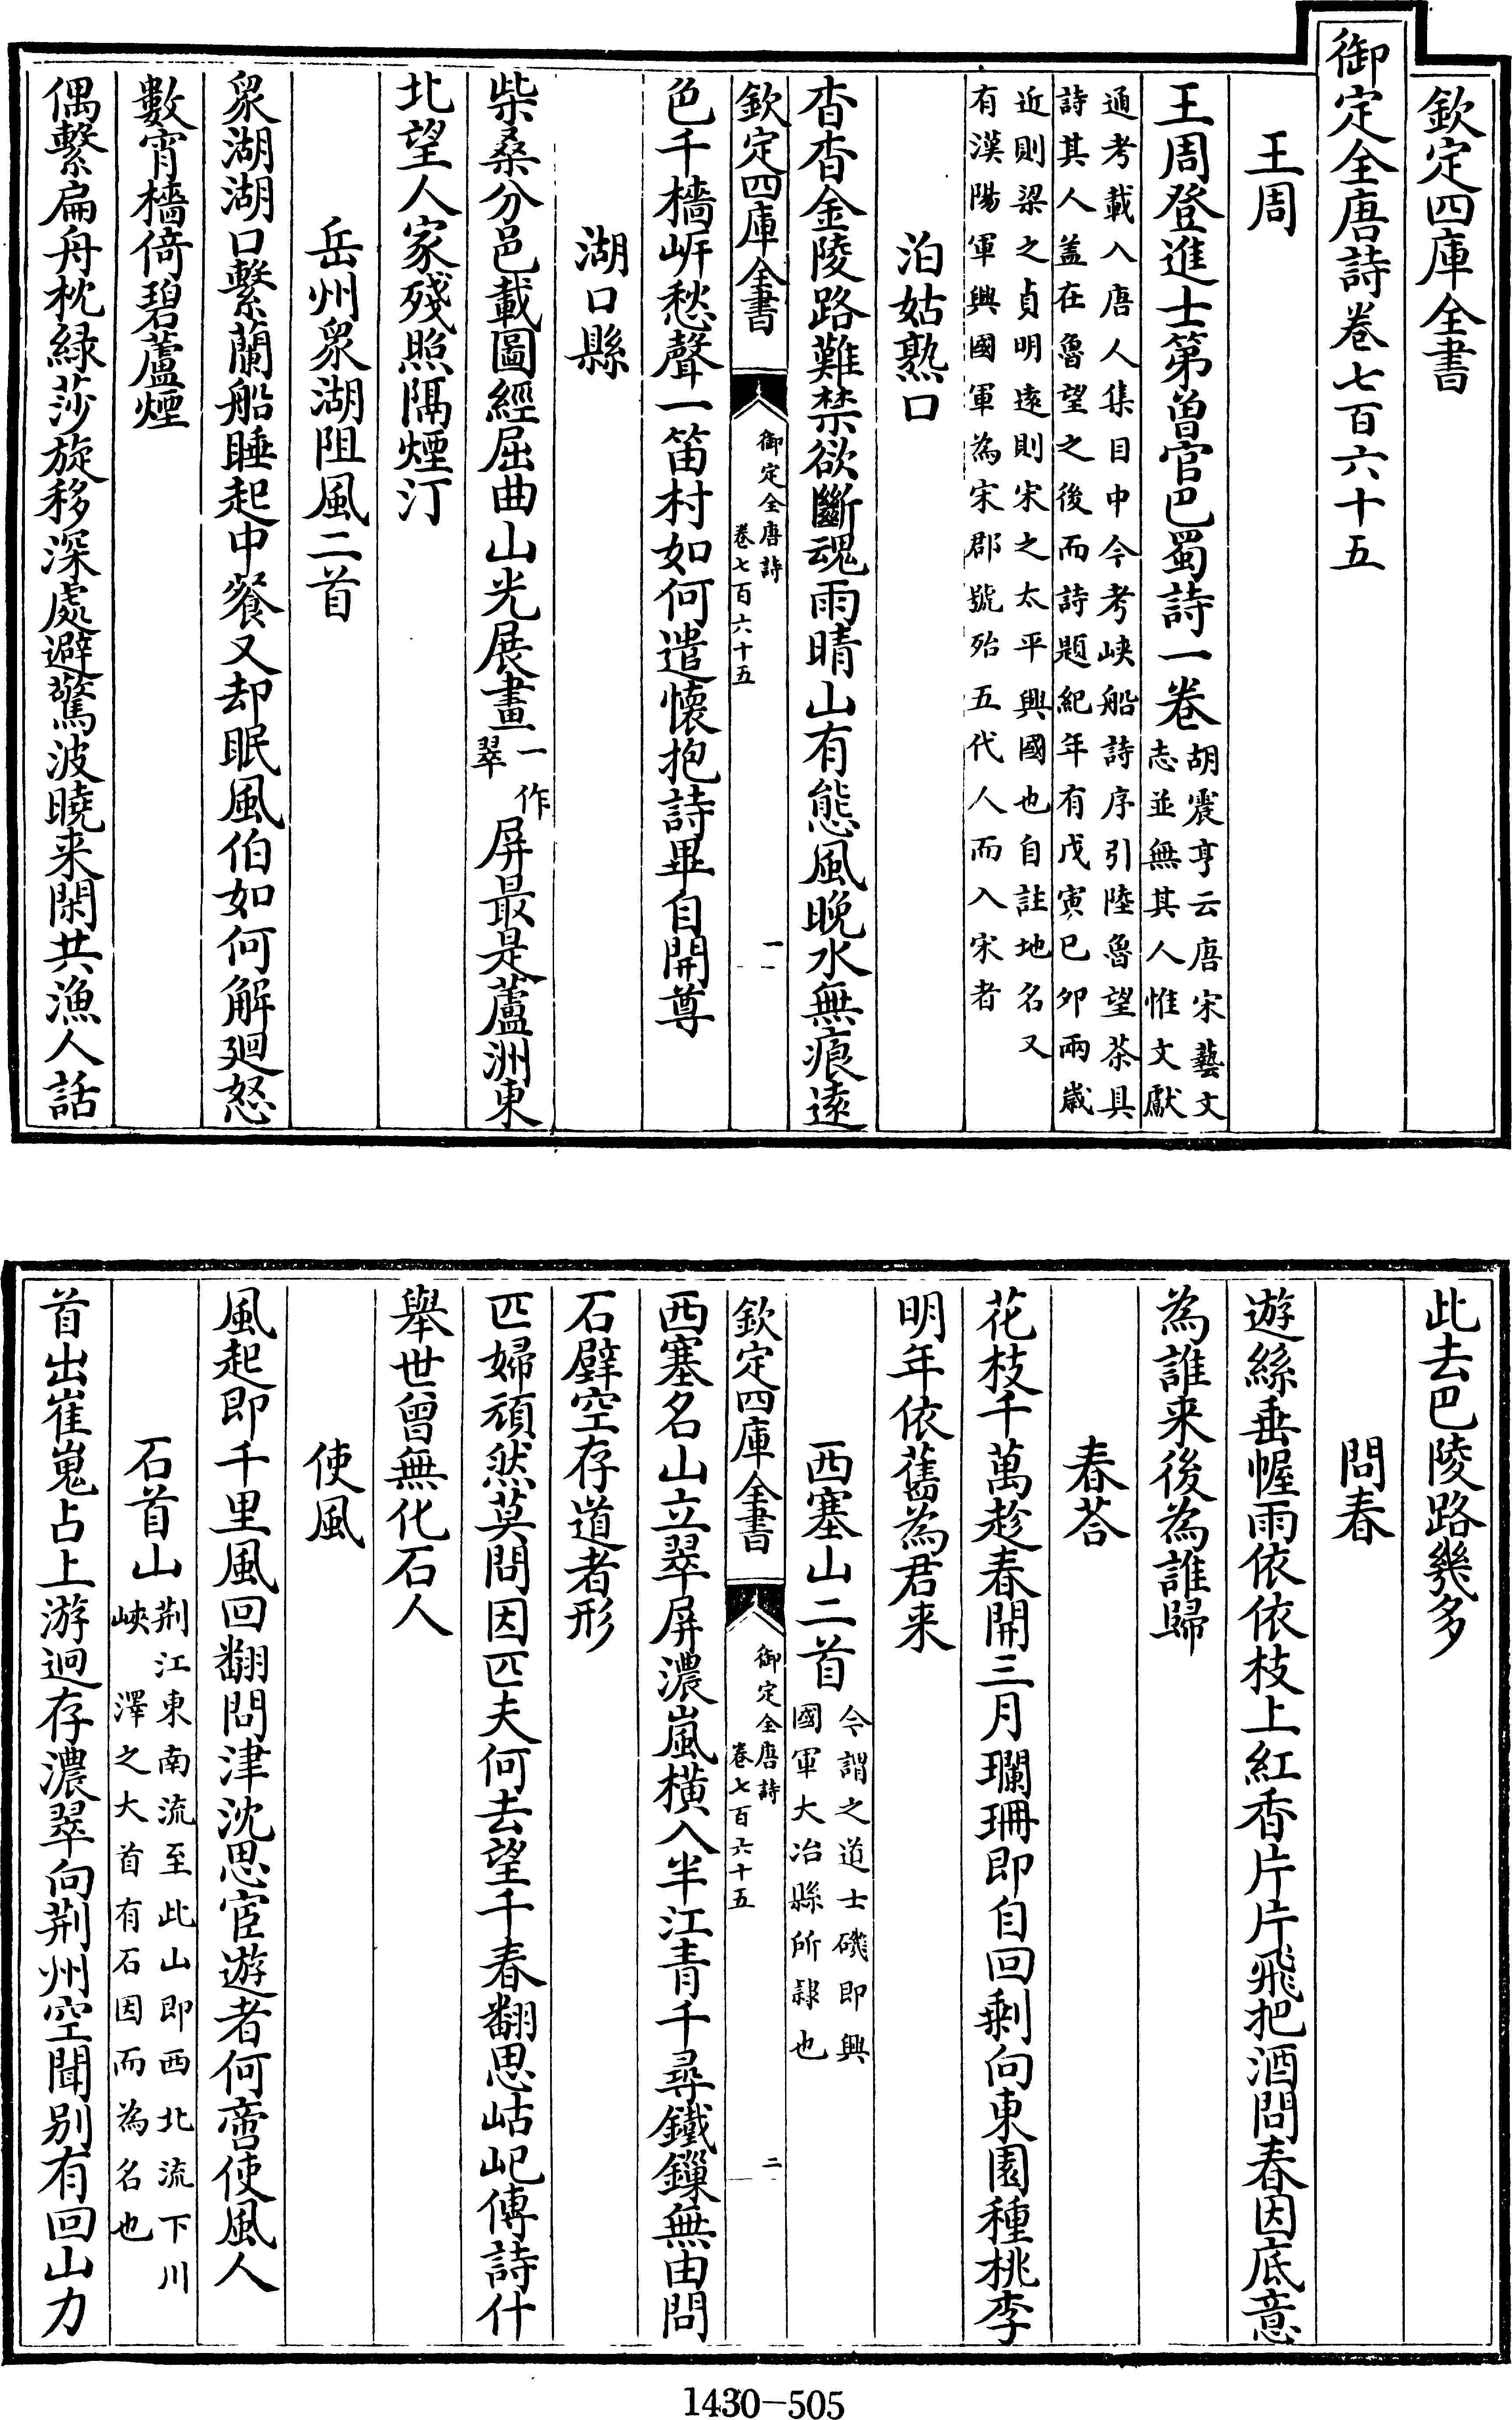 欽定四庫全書
御定全唐詩卷七百六十五
王周
王周登進士第曾官巴蜀詩一卷
胡震亨云唐宋藝文
志並無其人惟文獻
通考載入唐人集目中今考峽船詩序引陸魯望茶具
詩其人蓋在魯望之後而詩題紀年有戊寅巳卯兩歲
近則梁之貞明遠則宋之太平興國也自註地名又
有漢陽軍興國軍為宋郡號殆五代人而入宋者
泊姑熟口
杳杳金陵路難禁欲斷魂雨晴山有態風晚水無痕遠
欽定四庫全書
御定全唐詩
卷七百六十五
一
色千檣岍愁聲一笛村如何遣懷抱詩畢自開尊
湖口縣
柴桑分邑載圖經屈曲山光展畫一作翠屏最是蘆洲東
北望人家殘照隔煙汀
岳州衆湖阻風二首
衆湖湖口繫蘭船睡起中餐又却眠風伯如何解廻怒
數宵檣倚碧蘆煙
偶繫扁舟枕綠莎旋移深處避驚波曉来閑共漁人話
此去巴陵路幾多
問春
遊絲垂幄雨依依枝上紅香片片飛把酒問春因底意
為誰来後為誰歸
春荅
花枝千萬趁春開三月瓓珊即自回剩向東園種桃李
明年依舊為君来
西塞山二首
今謂之道士磯即興
國軍大冶縣所隸也
欽定四庫全書
御定全唐詩
卷七百六十五
二
西塞名山立翠屏濃嵐橫入半江青千尋鐵鏁無由問
石壁空存道者形
匹婦頑然莫問因匹夫何去望千春翻思岵屺傳詩什
舉世曾無化石人
使風
風起即千里風回翻問津沈思宦遊者何啻使風人
石首山
荆江東南流至此山即西北流下川
峽澤之大首有石因而為名也
首出崔嵬占上游迥存濃翠向荆州空聞别有回山力
1430-505